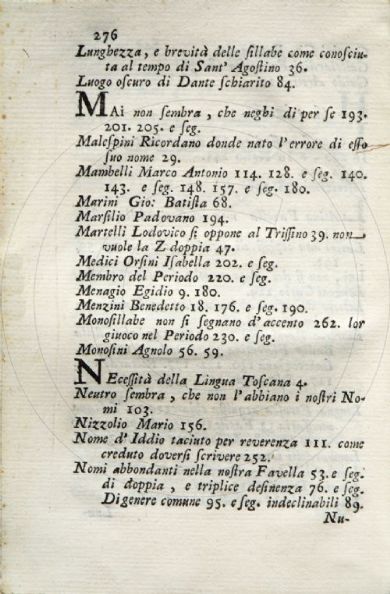 276
Lunghezza, e brevità delle sillabe come conosciu-
ta al tempo di Sant' Agostino 36.
Luogo oscuro di Dante schiarito 84.
MAi non sembra, che neghi di per se 193.
201. 205. e seg.
Malespini Ricordano donde nato l'errore di esso
suo nome 29.
Mambelli Marco Antonio 114. 128. e seg. 140.
143. e seg. 148. 157. e seg. 180.
Marini Gio: Batista 68.
Marsilio Padovano 194.
Martelli Lodovico si oppone al Trissino 39. non
vuole la Z doppia 47.
Medici Orsini Isabella 202. e seg.
Membro del Periodo 220. e seg.
Menagio Egidio 9. 180.
Menzini Benedetto 18. 176. e seg. 190.
Monosillabe non si segnano d'accento 262. lor
giuoco nel Periodo 230. e seg.
Monosini Agnolo 56. 59.
NEcessità della Lingua Toscana 4.
Neutro sembra, che non l'abbiano i nostri No-
mi 103.
Nizzolio Mario 156.
Nome d'Iddio taciuto per reverenza 111. come
creduto doversi scrivere 252.
Nomi abbondanti nella nostra Favella 53. e seg.
di doppia, e triplice desinenza 76. e seg.
Di genere comune 95. e seg. indeclinabili 89.
Nu-